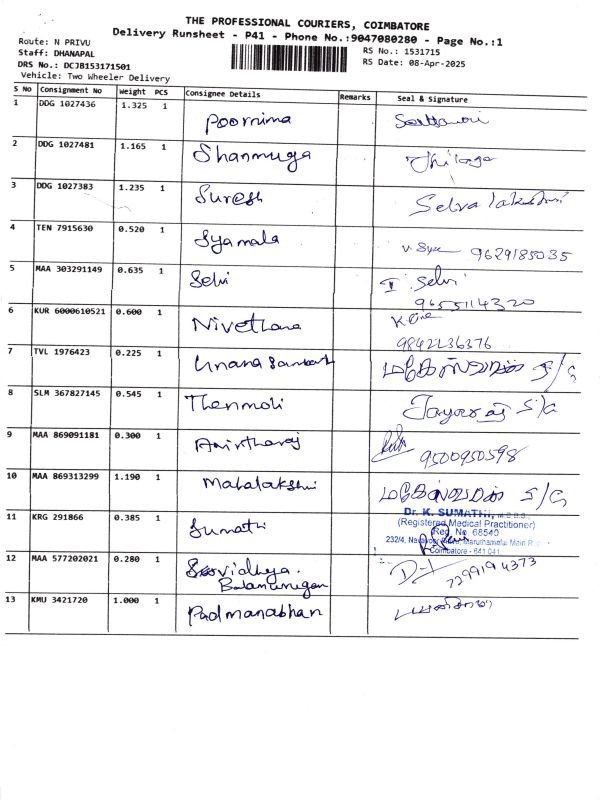 THE PROFESSIONAL COURIERS, COIMBATORE
Delivery Runsheet - P41 - Phone No.:9047080280 - Page No.:1
Route: N PRIVU
Staff: DHANAPAL
DRS No.: DCJB153171501
Vehicle: Two Wheeler Delivery
RS No.: 1531715
RS Date: 08-Apr-2025
S No Consignment No Weight PCS Consignee Details Remarks Seal & Signature
1 DDG 1027436 1.325 1 Poornima
2 DDG 1027481 1.165 1 Shanmuga Thilaga
3 DDG 1027383 1.235 1 Suresh Selva lakshmi
4 TEN 7915630 0.520 1 Syamala 9629185035
5 MAA 303291149 0.635 1 Selvi I. Selvi
9655114320
6 KUR 6000610521 0.600 1 Nivethana
9842236376
7 TVL 1976423 0.225 1 S/G
8 SLM 367827145 0.545 1 Thenmoli Jayaraj S/G
9 MAA 869091181 0.300 1 Amirtharaj 9500950598
10 MAA 869313299 1.190 1 Mahalakshmi S/G
11 KRG 291866 0.385 1 Sumathi
Dr. K. SUMATHI, M.B.B.S.,
(Registered Medical Practitioner)
Reg. No. 68540
232/4, Maruthamalai Main R
Coimbatore - 641 041.
12 MAA 577202021 0.280 1 Srividhya.
Balamurugan 7299194373
13 KMU 3421720 1.000 1 Padmanabhan